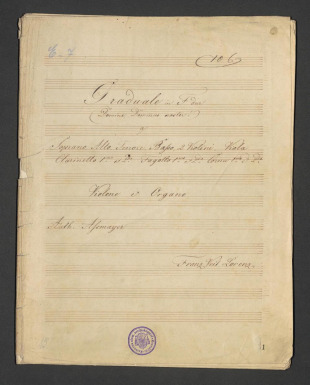 (106)
Graduale in F dur
(Domine Dominus noster)
a
Soprano Alto Tenore Basso 2 Violini Viola
Clarinetto 1mo et 2do Fagotto 1mo et 2do Corno 1mo et 2do
Violone et Organo
Franz Lorenz
1